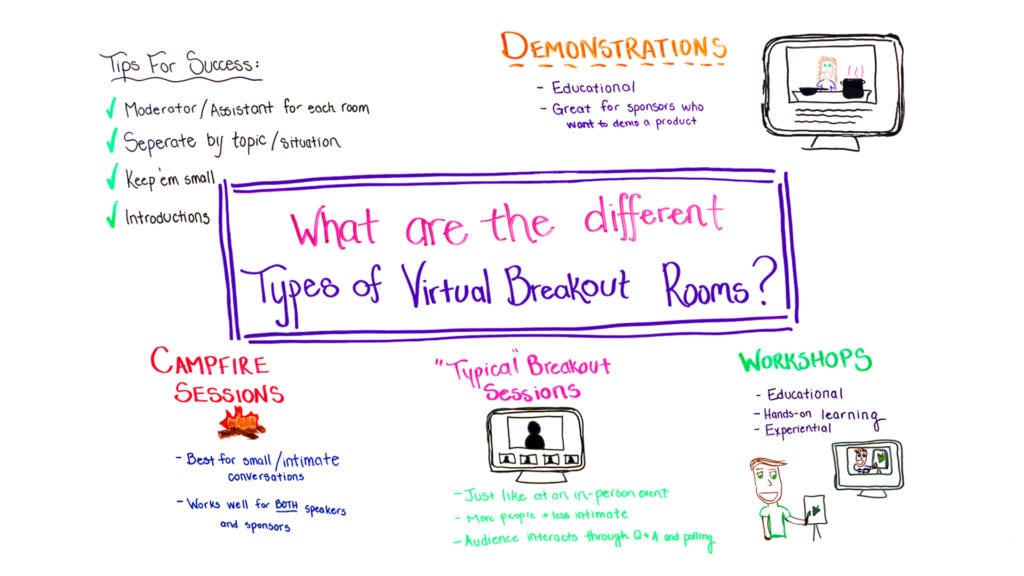 Tips For Success:
✓ Moderator/Assistant for each room
✓ Seperate by topic/situation
✓ Keep 'em small
✓ Introductions
DEMONSTRATIONS
- Educational
- Great for sponsors who
want to demo a product
What are the different
Types of Virtual Breakout Rooms?
CAMPFIRE
SESSIONS
- Best for small/intimate
conversations
- Works well for BOTH speakers
and sponsors
"Typical" Breakout
Sessions
- Just like at an in-person event
- More people + less intimate
- Audience interacts through Q+A and polling
WORKSHOPS
- Educational
- Hands-on learning
- Experiential